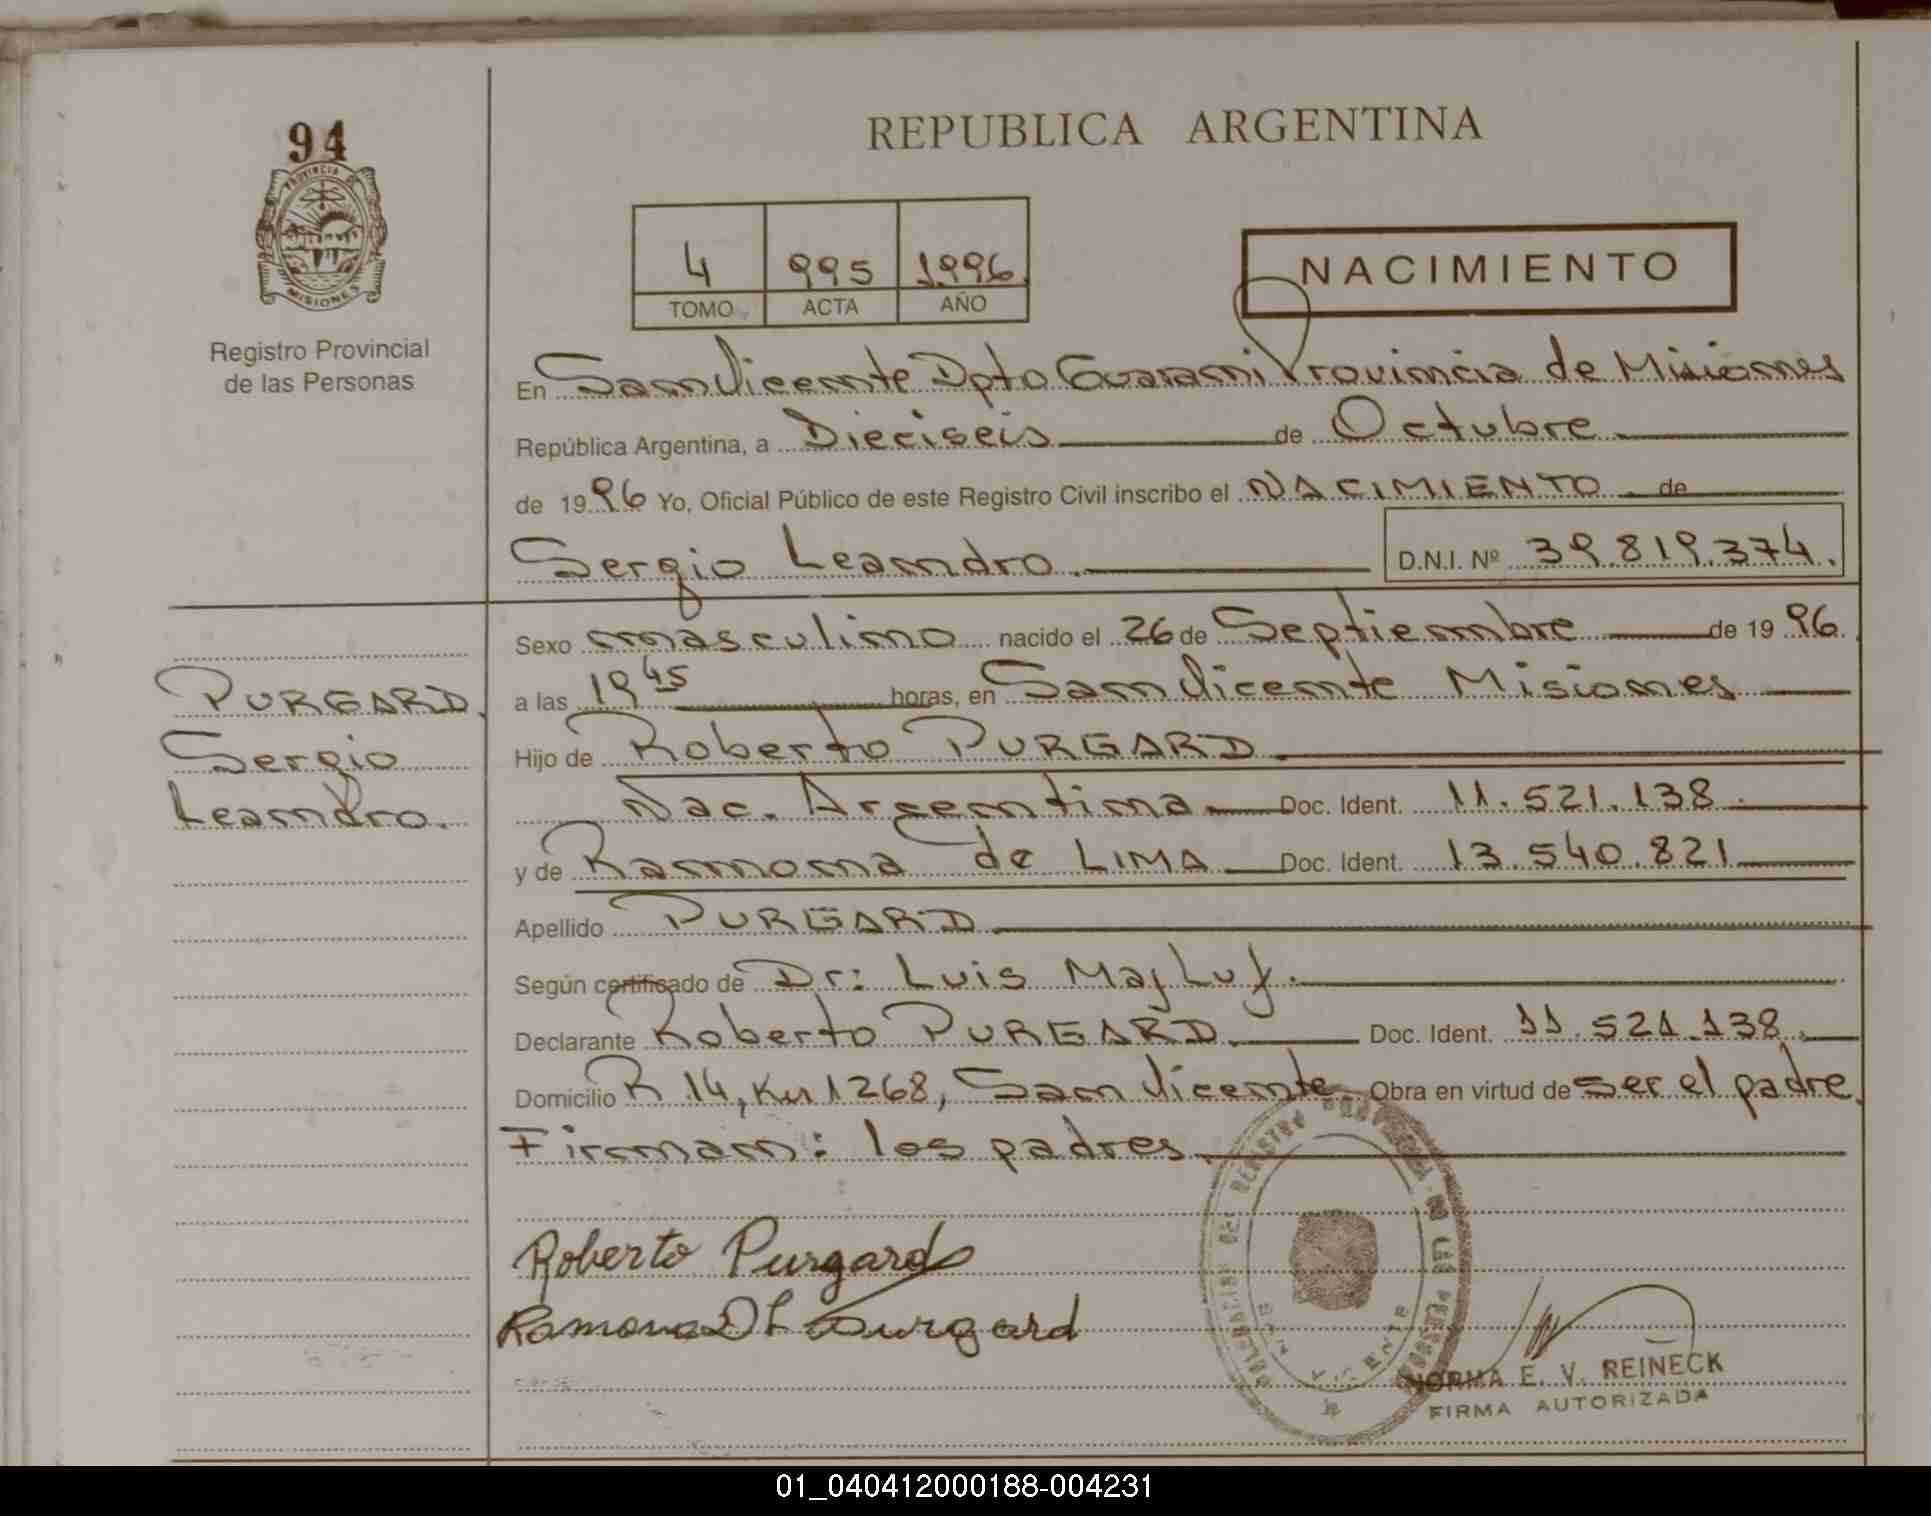 94
PROVINCIA DE
MISIONES
Registro Provincial
de las Personas
REPUBLICA ARGENTINA
4 995 1996
TOMO ACTA AÑO
NACIMIENTO
En San Vicente Dpto Guarani Provincia de Misiones
República Argentina, a Dieciseis de Octubre
de 1996 Yo, Oficial Público de este Registro Civil inscribo el NACIMIENTO de
Sergio Leandro. D.N.I. Nº 39.819.374.
Sexo masculino nacido el 26 de Septiembre de 1996.
a las 19 45 horas, en San Vicente Misiones
Hijo de Roberto PURGARD
Nac. Argentina Doc. Ident. 11.521.138.
y de Ramona de LIMA Doc. Ident. 13.540.821
Apellido PURGARD
Según certificado de Dr: Luis Majluf.
Declarante Roberto PURGARD. Doc. Ident. 11.521.138.
Domicilio R 14, Km 1268, San Vicente Obra en virtud de ser el padre.
Firman: los padres.
PURGARD.
Sergio
Leandro.
Roberto Purgard
Ramona D L Purgard
DELEGACION DEL REGISTRO PROVINCIAL DE LAS PERSONAS
SAN VICENTE
NORMA E. V. REINECK
FIRMA AUTORIZADA
01_040412000188-004231